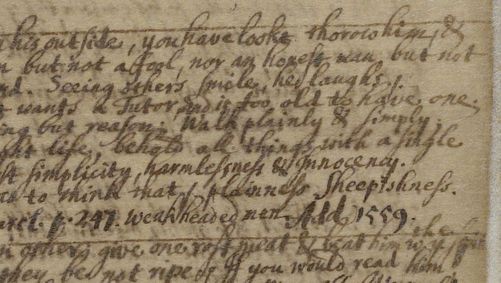 his outside, you have lookt thorow him, &
but not a fool, nor an honest man but not
Seeing others smile, he laughs.
wants a Tutor, and is too old to have one,
ing but reason. Walk plainly & simply,
life, behold all things with a single
simplicity, harmlessness & Innocency.
to mind that, plainness Sheepishness.
p. 247. weak headed men Add. 1559.
others, give one rost meat & beat him wth the spit
they be not ripe. If you would read him